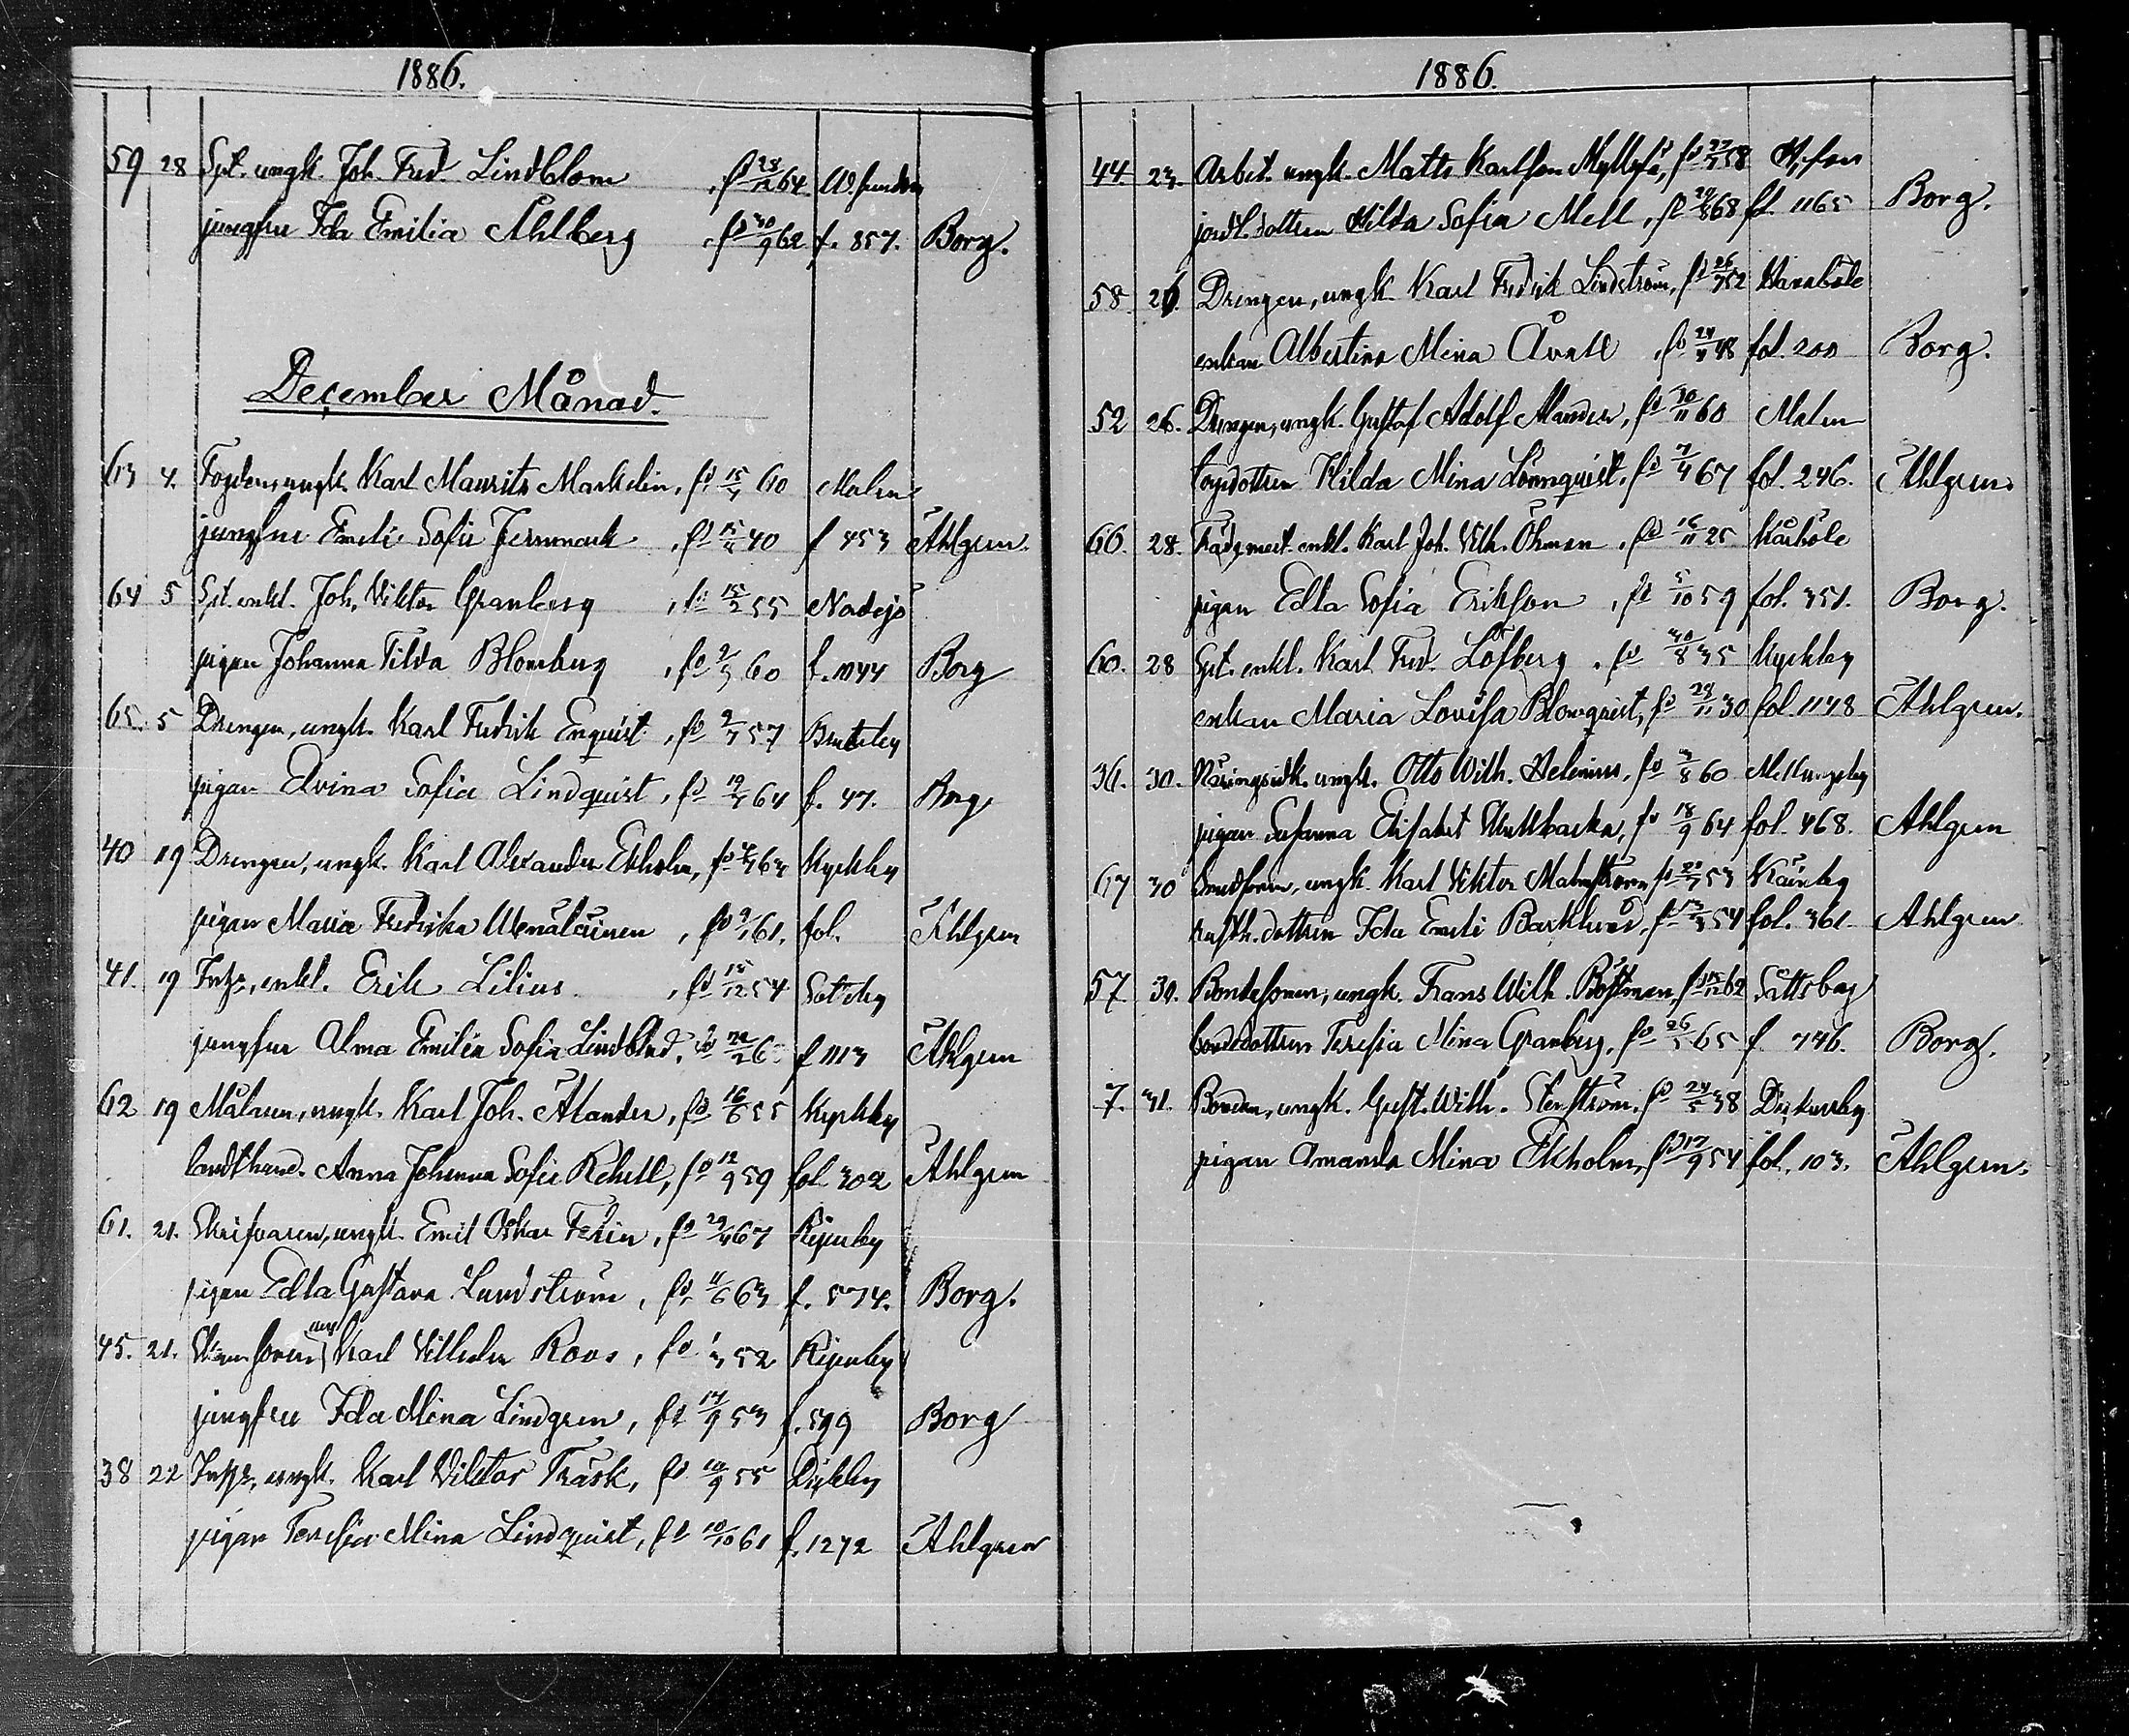 1886.
59 28 Spt. ungk. Joh. Fred. Lindblom, fd 28/12 64
jungfru Ida Emilia Ahlberg, fd 30/9 62 f. 857. Borg.
December Månad.
63 4. Fogden, ungk. Karl Maurits Markelin, fd 15/4 60 Malm
jungfru Emeli Sofia 40 f 453 Ahlgren.
64 5 Spt. enkl. Joh. Viktor Granberg, fd 15/2 55
pigan Johanna Tilda Blomberg, fd 2/3 60 f. 1044 Borg
65. 5 Drengen, ungk. Karl Fredrik Enquist, fd 9/7 57
pigan Elvina Sofia Lindquist, fd 19/4 64 f. 47. Borg
40 19 Drengen, ungk. Karl Alexander Ekholm, fd 63 Kyrkby
pigan Maria Fredrika, fd 9/1 61. fol. Ahlgren
41. 19 enkl. Erik Lilius, fd 15/12 54
jungfru Alma Emilia Sofia Lindblad, f 1113 Ahlgren
62 19 Målaren, ungk. Karl Joh. Ålander, fd 16/6 55 Kyrkby
Anna Johanna Sofia, fd 12/9 59 fol. 302 Ahlgren
61. 21. Skrifvaren, ungk. Emil Oskar, fd 29/4 67
pigan Edla Gustava Lundström, fd 11/6 63 f. 574. Borg.
45. 21. ung Karl Vilhelm Roos, fd 1/3 52
jungfru Ida Mina Lindgren, fd 14/9 53 f. 599 Borg
38 22 ungk. Karl Viktor Träsk, fd 10/9 55
pigan Teresia Mina Lindquist, fd 10/10 61 f. 1272 Ahlgren
1886.
44. 23. Arbet. ungk. Matts Karlsson
jordl. dottren Hilda Sofia Mell, fd 29/8 68 fl. 1165 Borg.
58. 26. Drengen, ungk. Karl Fredrik Lindström, fd 26/7 52 Hanaböle
enkan Albertina Mina Åvall, 48 fol. 200 Borg.
52 26. Drengen, ungk. Gustaf Adolf Alander, fd 30/11 60 Malm
Hilda Mina Lönnquist, fd 7/4 67 fol. 246. Ahlgren.
66. 28. enkl. Karl Joh. Vilh. Öhman, fd 16/11 25
pigan Edla Sofia Erikson, fd 5/10 59 fol. 351. Borg.
60. 28 Spt. enkl. Karl Fred. Löfberg, fd 30/8 35 Kyrkby
enkan Maria Lovisa Blomquist, fd 29/11 30 fol. 1148 Ahlgren.
36. 30. ungk. Otto Wilh. Helenius, fd 3/8 60 Mellungsby
pigan Susanna Elisabet, fd 18/9 64 fol. 468. Ahlgren
67 30 ungk. Karl Viktor Malmström
Ida Emeli Barklund, 54 fol. 361. Ahlgren
57. 30. Bondesonen, ungk. Frans Wilh. Böstman, 62 Sottsbay
bondedottren Teresia Mina Granberg, 65 f. 746. Borg.
7. 31. Bonden, ungk. Gust. Wilh. Stenström, fd 24/5 38
pigan Amanda Mina Ekholm, fd 17/9 54 fol. 103. Ahlgren.